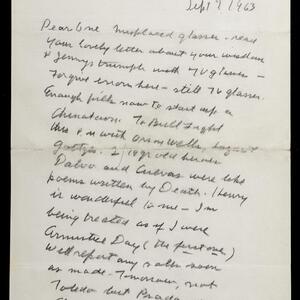 Sept 7 1963
Dear One Misplaced glasses - read
your lovely letter about your wisdom
& Jenny's triumph with TV glasses -
Forgive errors here - still TV glasses.
Enough pills now to start up a
Chinatown. To Bull Fight
this P.M. with Orson Welles,
2 18 yr old heroes
and Cuevas were like
poems written by Death. Henry
is wonderful to me - I'm
being treated as if I were
Armistice Day (the first one)
Will report any soon
as made - Tomorrow, not
Toledo but Prado